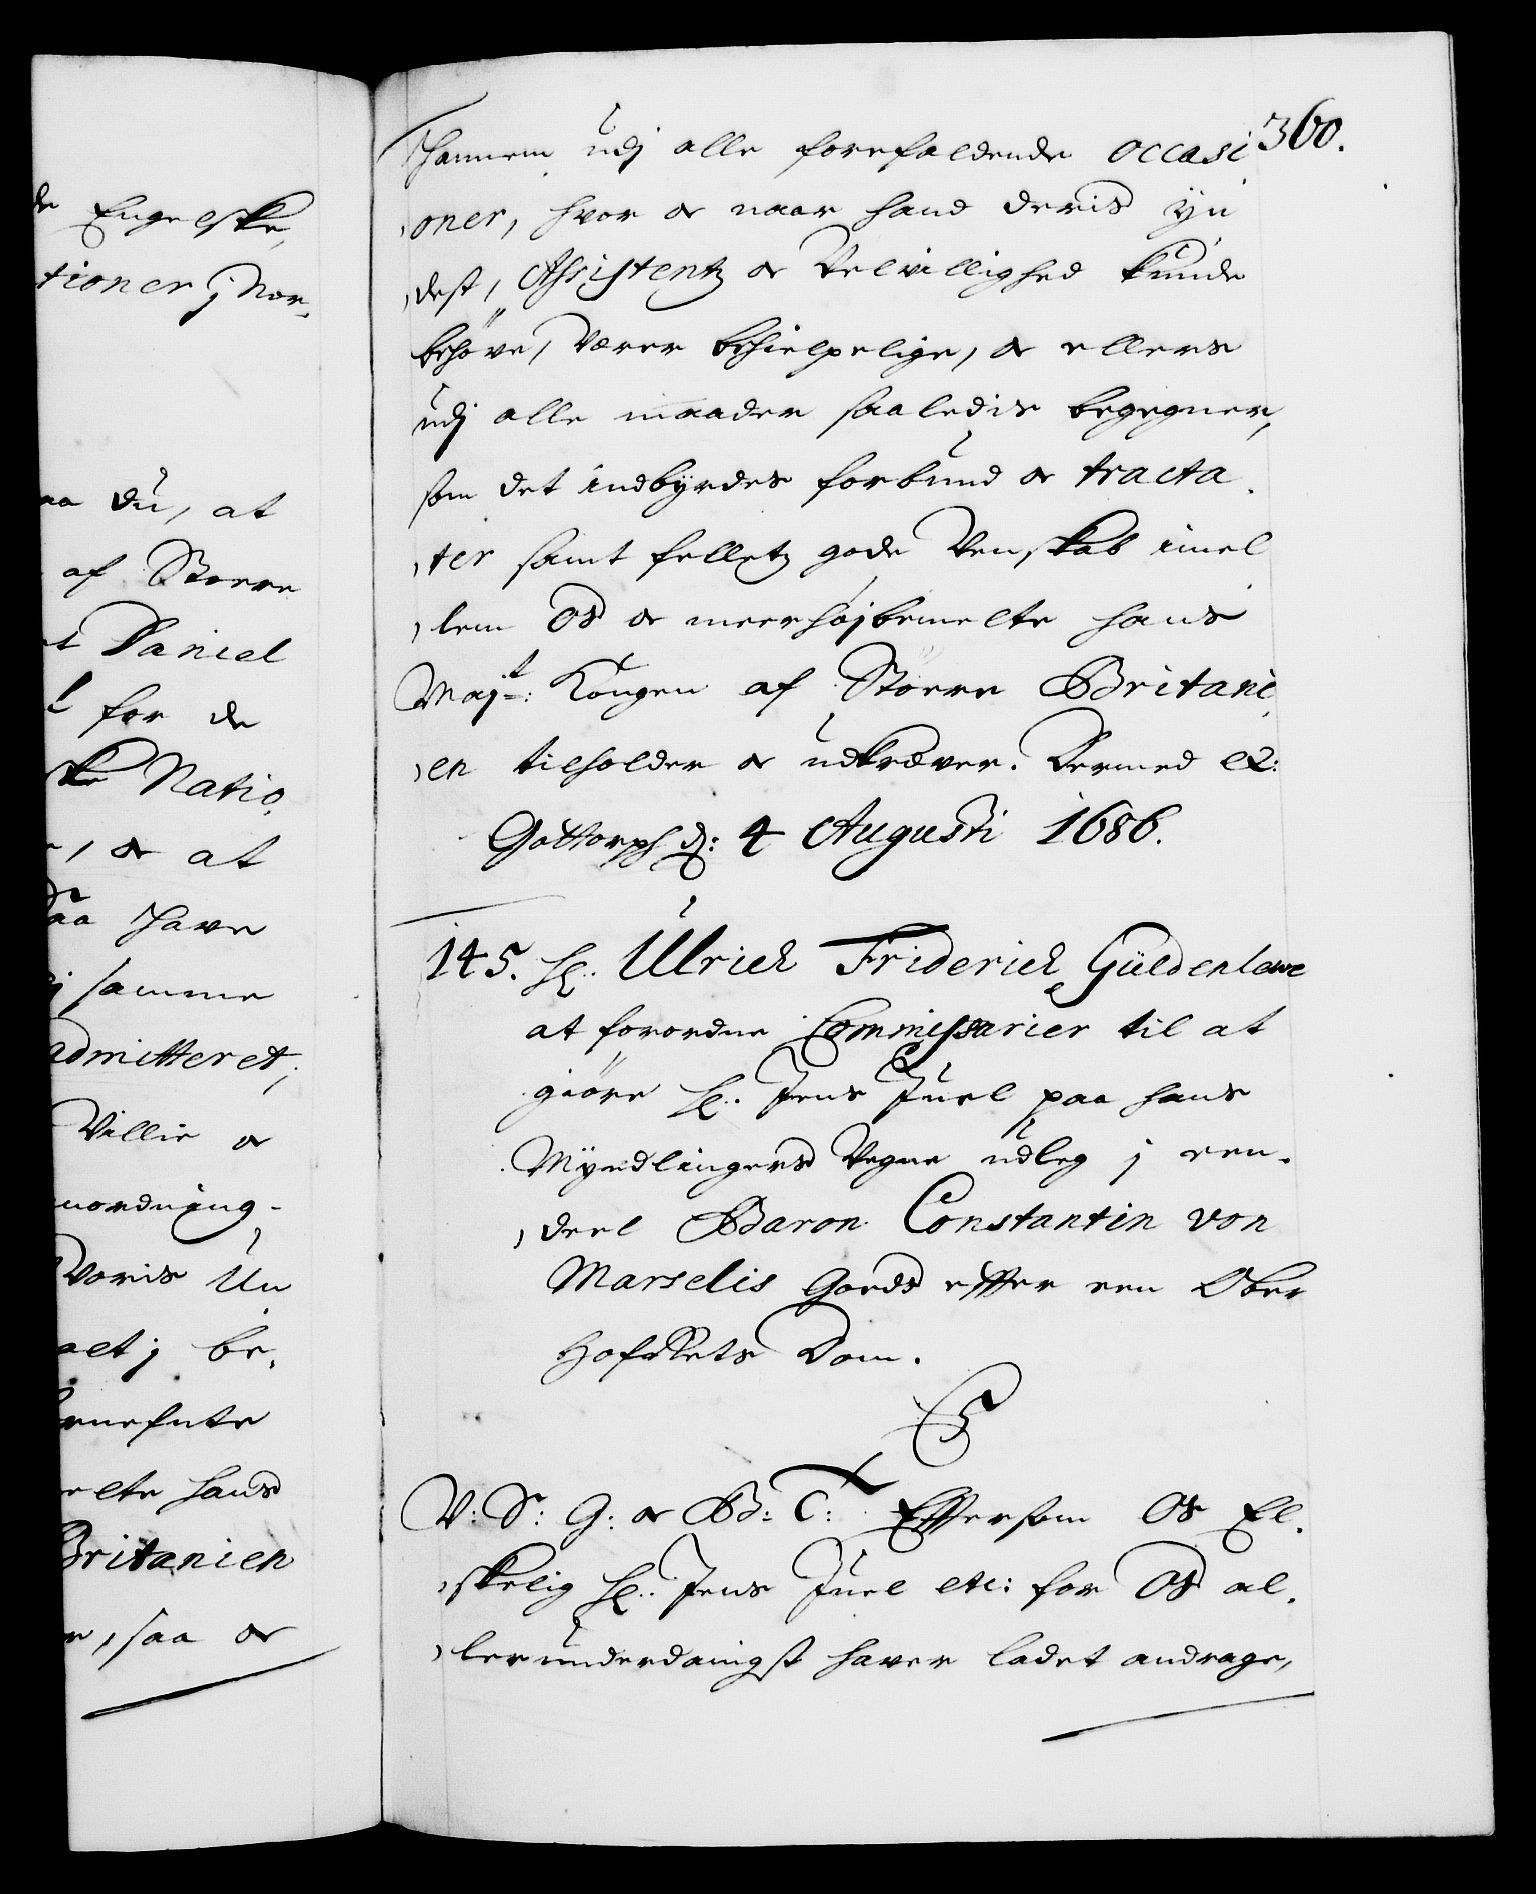 de Engelske,
tioner j Nor-
aa du, at
af Storre
t Daniel
l for de
ske Natio,
, og at
saa have
j samme
admitteret,
Villie og
nordning-
Voris Un
alt j be,
ernefnte
elte hans
Britanien
r, saa og
360.
Hannem udj alle forefaldende occasi
,oner, hvor og naar hand deris yn
,dest, Assistentz og Velvillighed kunde
behöve, værer behielpelige, og ellers
udj alle maader saaledis begegner,
som det indbÿrdes forbund og tracta,
,ter samt felletz gode Venskab imel
,lem Os og meerhöjbemelte hans
Majt: Kongen af Större Britani,
,en tilholder og udkræver. Dermed etc:
Gottorph d: 4 Augusti 1686.
145. Hr: Ulrich Friderich Güldenlewe
at forordne Commissarier til at
giöre Hr: Jens Juel paa hans
Mÿndlingers Vegne udleg j een,
,deel Baron Constantin von
Marselis Goeds effter een Ober
Hofrets Dom.
C5
V: S: G: og B: T: Effersom Os El,
,skelig Hr: Jens Juel etc: for Os al,
,lerunderdanigst haver ladet andrage,